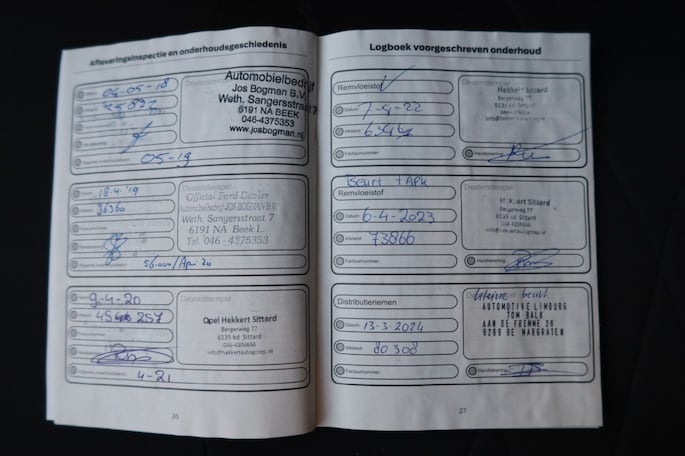 Afleveringsinspectie en onderhoudsgeschiedenis
Datum 04-05-18
Automobielbedrijf
Jos Bogman B.V.
Weth. Sangersstraat 7
6191 NA BEEK
046-4375353
www.josbogman.nl
05-19
Datum 18-4-'19
Dealerstempel
Official Ford Dealer
Automobielbedrijf JOS BOGMAN B.V.
Weth. Sangersstraat 7
6191 NA Beek L.
Tel. 046 - 4375353
36360
56.000/Apr 20
9-4-20
Dealerstempel
Opel Hekkert Sittard
Bergerweg 77
6135 kd Sittard
046-4206666
info@hekkertautogroep.nl
4-21
26
Logboek voorgeschreven onderhoud
Remvloeistof
Dealerstempel
Hekkert Sittard
Bergerweg 77
6135 kd Sittard
Datum
Afstand
Factuurnummer
Handtekening
Beurt + Apk
Remvloeistof
Dealerstempel
Sittard
Bergerweg 77
6135 kd Sittard
info@hekkertautogroep.nl
Datum 6-4-2023
Afstand 73866
Factuurnummer
Handtekening
Distributieriemen
beurt
AUTOMOTIVE LIMBURG
TOM BALK
AAN DE FREMME 26
6269 BE MARGRATEN
Datum 13-3-2024
Afstand 80308
Factuurnummer
Handtekening
27